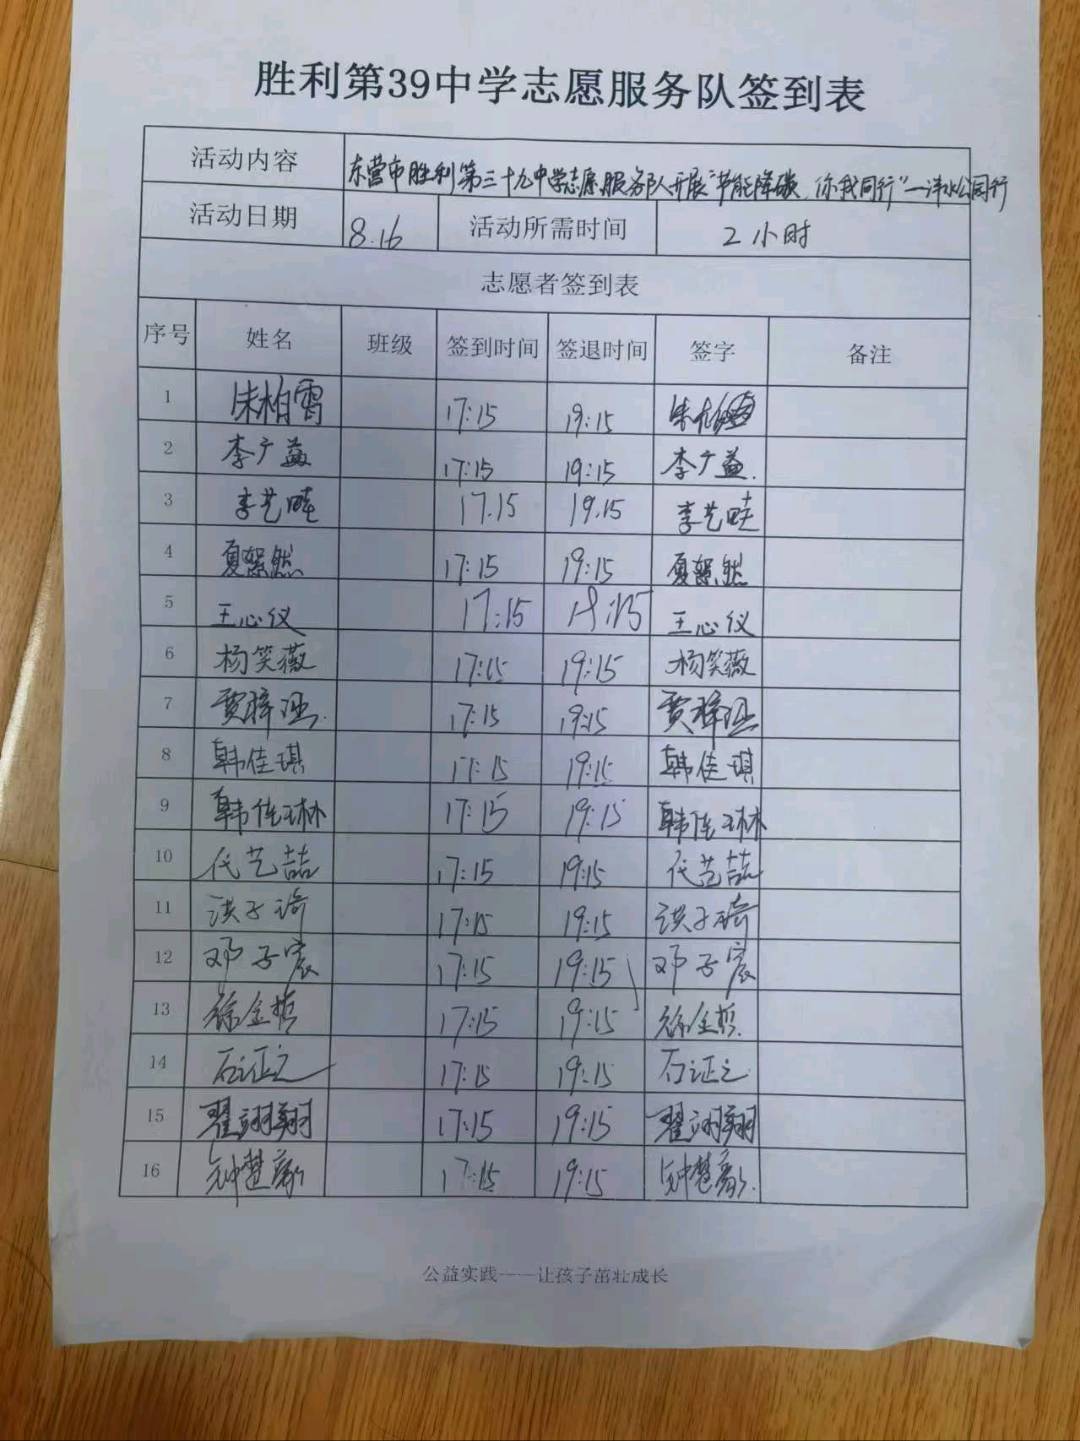 胜利第39中学志愿服务队签到表
活动内容 东营市胜利第三十九中学志愿服务队开展"节能降碳,你我同行"
活动日期 8.16 活动所需时间 2小时
志愿者签到表
序号 姓名 班级 签到时间 签退时间 签字 备注
1 朱柏霄 17:15 19:15
2 李广益 17:15 19:15 李广益.
3 李艺畦 17.15 19.15 李艺畦
4 夏絮然 17:15 19:15 夏絮然
5 王心仪 17:15 19:15 王心仪
6 杨笑薇 17:15 19:15 杨笑薇
7 17:15 19:15
8 韩佳琪 17:15 19:15 韩佳琪
9 韩佳琳 17:15 19:15 韩佳琳
10 代艺喆 17:15 19:15 代艺喆
11 洪子琦 17:15 19:15 洪子琦
12 邓子宸 17:15 19:15 邓子宸
13 徐金哲 17:15 19:15 徐金哲.
14 石证之 17:15 19:15 石证之
15 翟翊翔 17:15 19:15 翟翊翔
16 17:15 19:15
公益实践——让孩子茁壮成长